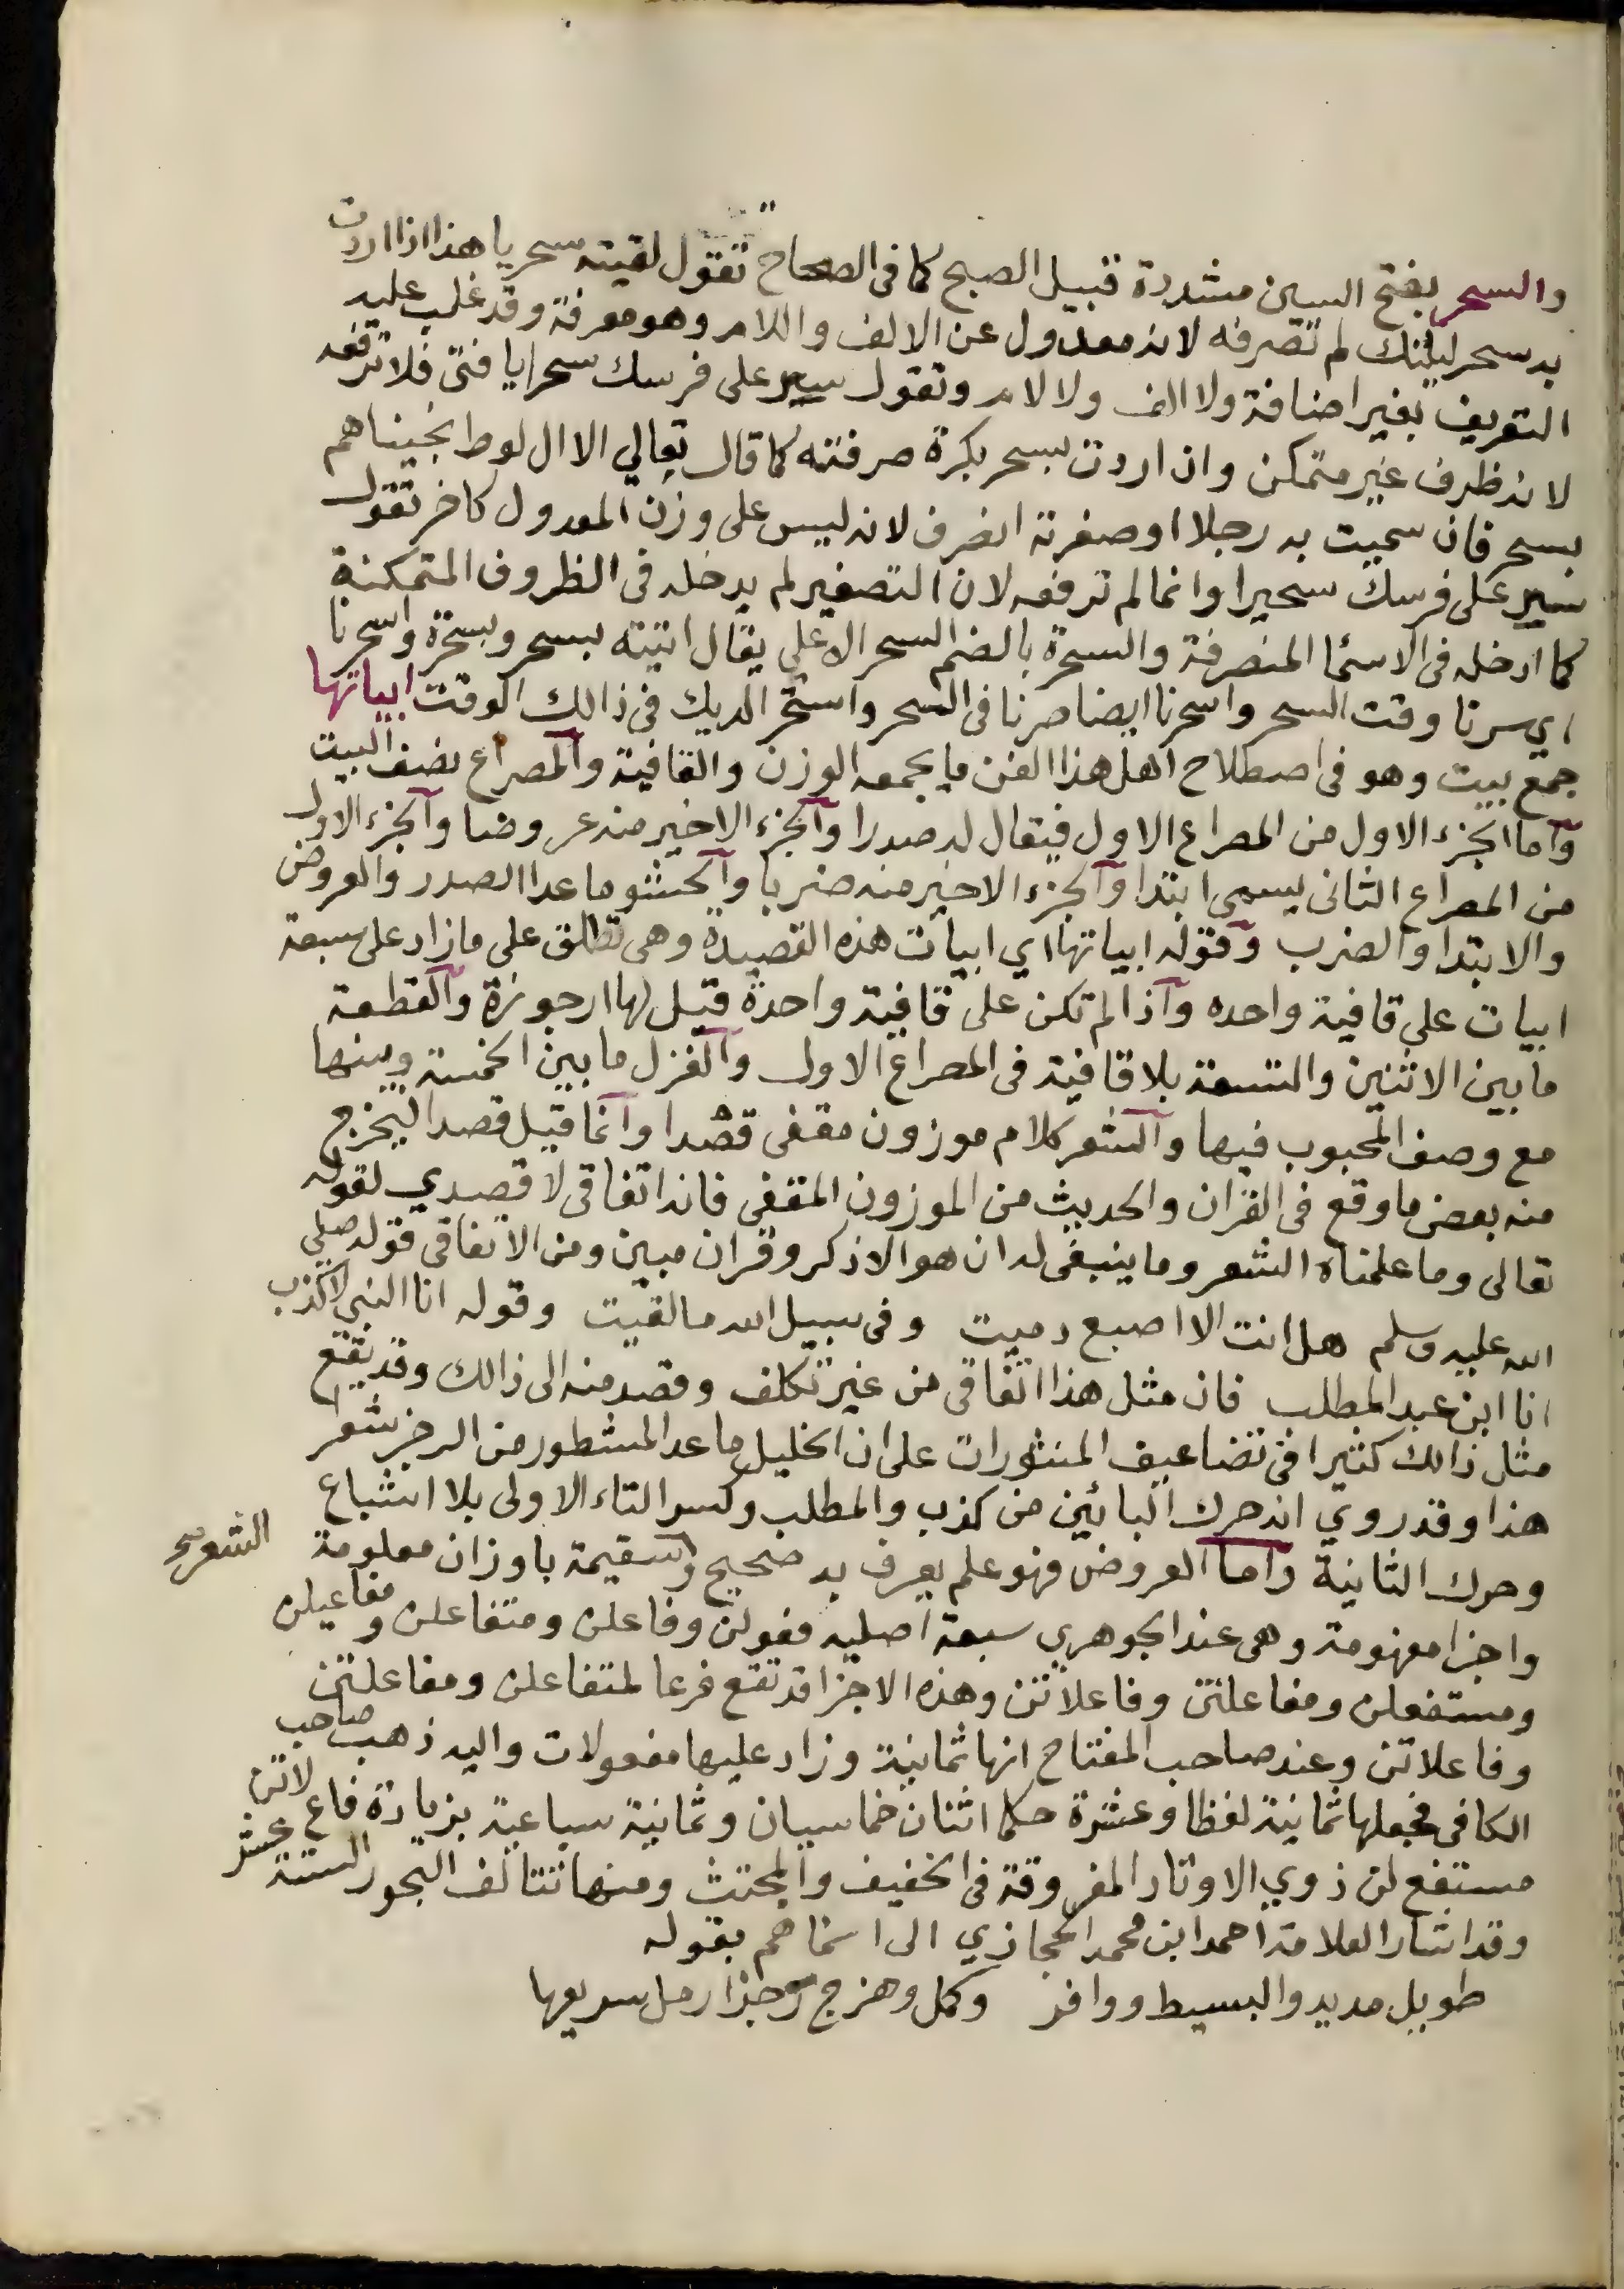 والسحر بفتح السين مشددة قبيل الصبح كما فى الصحاح تقول لقيته سحر يا هذا اذا اردت
به سحر ليلتك لم تصرفه لانه معدول عن الالف واللام وهو معرفة وقد غلب عليه
التعريف بغير اضافة ولا الف ولا لام وتقول سير على فرسك سحرا يا فتى فلا ترفعه
لانه ظرف غير متمكن وان اردت بسحر بكرة صرفته كما قال تعالي الا ال لوط نجيناهم
بسحر فان سميت به رجلا او صغرته انصرف لانه ليس على وزن المعدول كاخر تقول
سير على فرسك سحيرا وانما لم ترفعه لان التصغير لم يدخله فى الظروف المتمكنة
كما ادخله فى الاسما المنصرفة والسحرة بالضم السحر الاعلي يقال اتيته بسحر وبسحرة واسحرنا
اي سرنا وقت السحر واسحرنا ايضا صرنا فى السحر واستحر الديك فى ذالك الوقت ابياتها
جمع بيت وهو فى اصطلاح اهل هذا الفن ما يجمعه الوزن والقافية والمصراع نصف البيت
وآما الجزء الاول من المصراع الاول فيقال له صدرا وآلجزء الاخير منه عروضا وآلجزء الاول
من المصراع الثانى يسمى ابتدا وآلجزء الاخير منه ضربا وآلحشو ما عدا الصدر والعروض
والابتدا والضرب وقوله ابياتها اي ابيات هذه القصيدة وهى تطلق على ما زاد على سبعة
ابيات على قافية واحده وآذا لم تكن على قافية واحدة قيل لها ارجوزة وآلقطعة
ما بين الاثنين والتسعة بلا قافية فى المصراع الاول وآلغزل ما بين الخمسة وبينها
مع وصف المحبوب فيها وآلشعر كلام موزون مقفى قصدا وآنما قيل قصدا ليخرج
منه بعض ما وقع فى القران والحديث من الموزون المقفى فانه اتفاقى لا قصدي لقوله
تعالى وما علمناه الشعر وما ينبغى له ان هو الا ذكر وقران مبين ومن الاتفاقى قوله صلي
الله عليه وسلم هل انت الا اصبع دميت وفى سبيل الله ما لقيت وقوله انا النبي لا كذب
انا ابن عبد المطلب فان مثل هذا اتفاقى من غير تكلف وقصد منه الى ذالك وقد يقع
مثل ذالك كثيرا فى تضاعيف المنثورات على ان الخليل ما عد المشطور من الرجز شعرا
هذا وقد روي انه حرك البائين من كذب والمطلب وكسر التاء الاولى بلا اشباع
وحرك الثانية وآما العروض فهو علم يعرف به صحيح الشعر وسقيمة باوزان معلومة
واجزا مفهومة وهى عند الجوهري سبعة اصليه فعولن وفاعلن ومتفاعلن ومفاعيلن
ومستفعلن ومفاعلتن وفاعلاتن وهذه الاجزا قد تقع فرعا لمتفاعلن ومفاعلتن
وفاعلاتن وعند صاحب المفتاح انها ثمانية وزاد عليها مفعولات واليه ذهب صاحب
الكافى فجعلها ثمانية لفظا وعشرة حكما اثنان خماسيان وثمانية سباعية بزيادة فاع لاتن
مستفع لن ذوي الاوتاد المفروقة فى الخفيف والمجتث ومنها تتالف البحور الستة عشر
وقد اشار العلامة احمد ابن محمد الحجازي الى اسماهم بقوله
طويل مديد والبسيط ووافر وكمل وهزج رجزا رمل سريعها